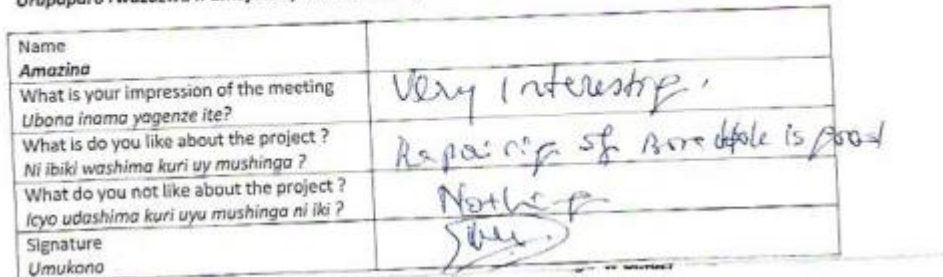 Name
Amazina
What is your impression of the meeting
Ubona inama yagenze ite?
Very Interesting.
What is do you like about the project ?
Ni ibiki washima kuri uy mushinga ?
Repairing of Borehole is good
What do you not like about the project ?
Icyo udashima kuri uyu mushinga ni iki ?
Nothing
Signature
Umukono